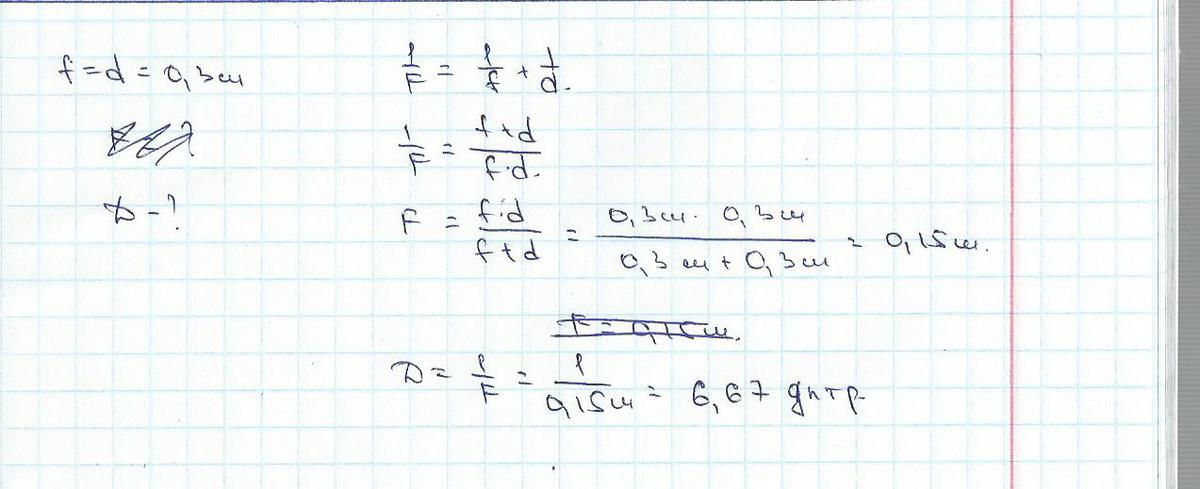 f = d = 0,3 м
D - ?
1/F = 1/f + 1/d.
1/F = (f + d)/(f · d).
F = (f · d)/(f + d) = (0,3 м · 0,3 м)/(0,3 м + 0,3 м) = 0,15 м.
F = 0,15 м.
D = 1/F = 1/(0,15 м) = 6,67 дптр.